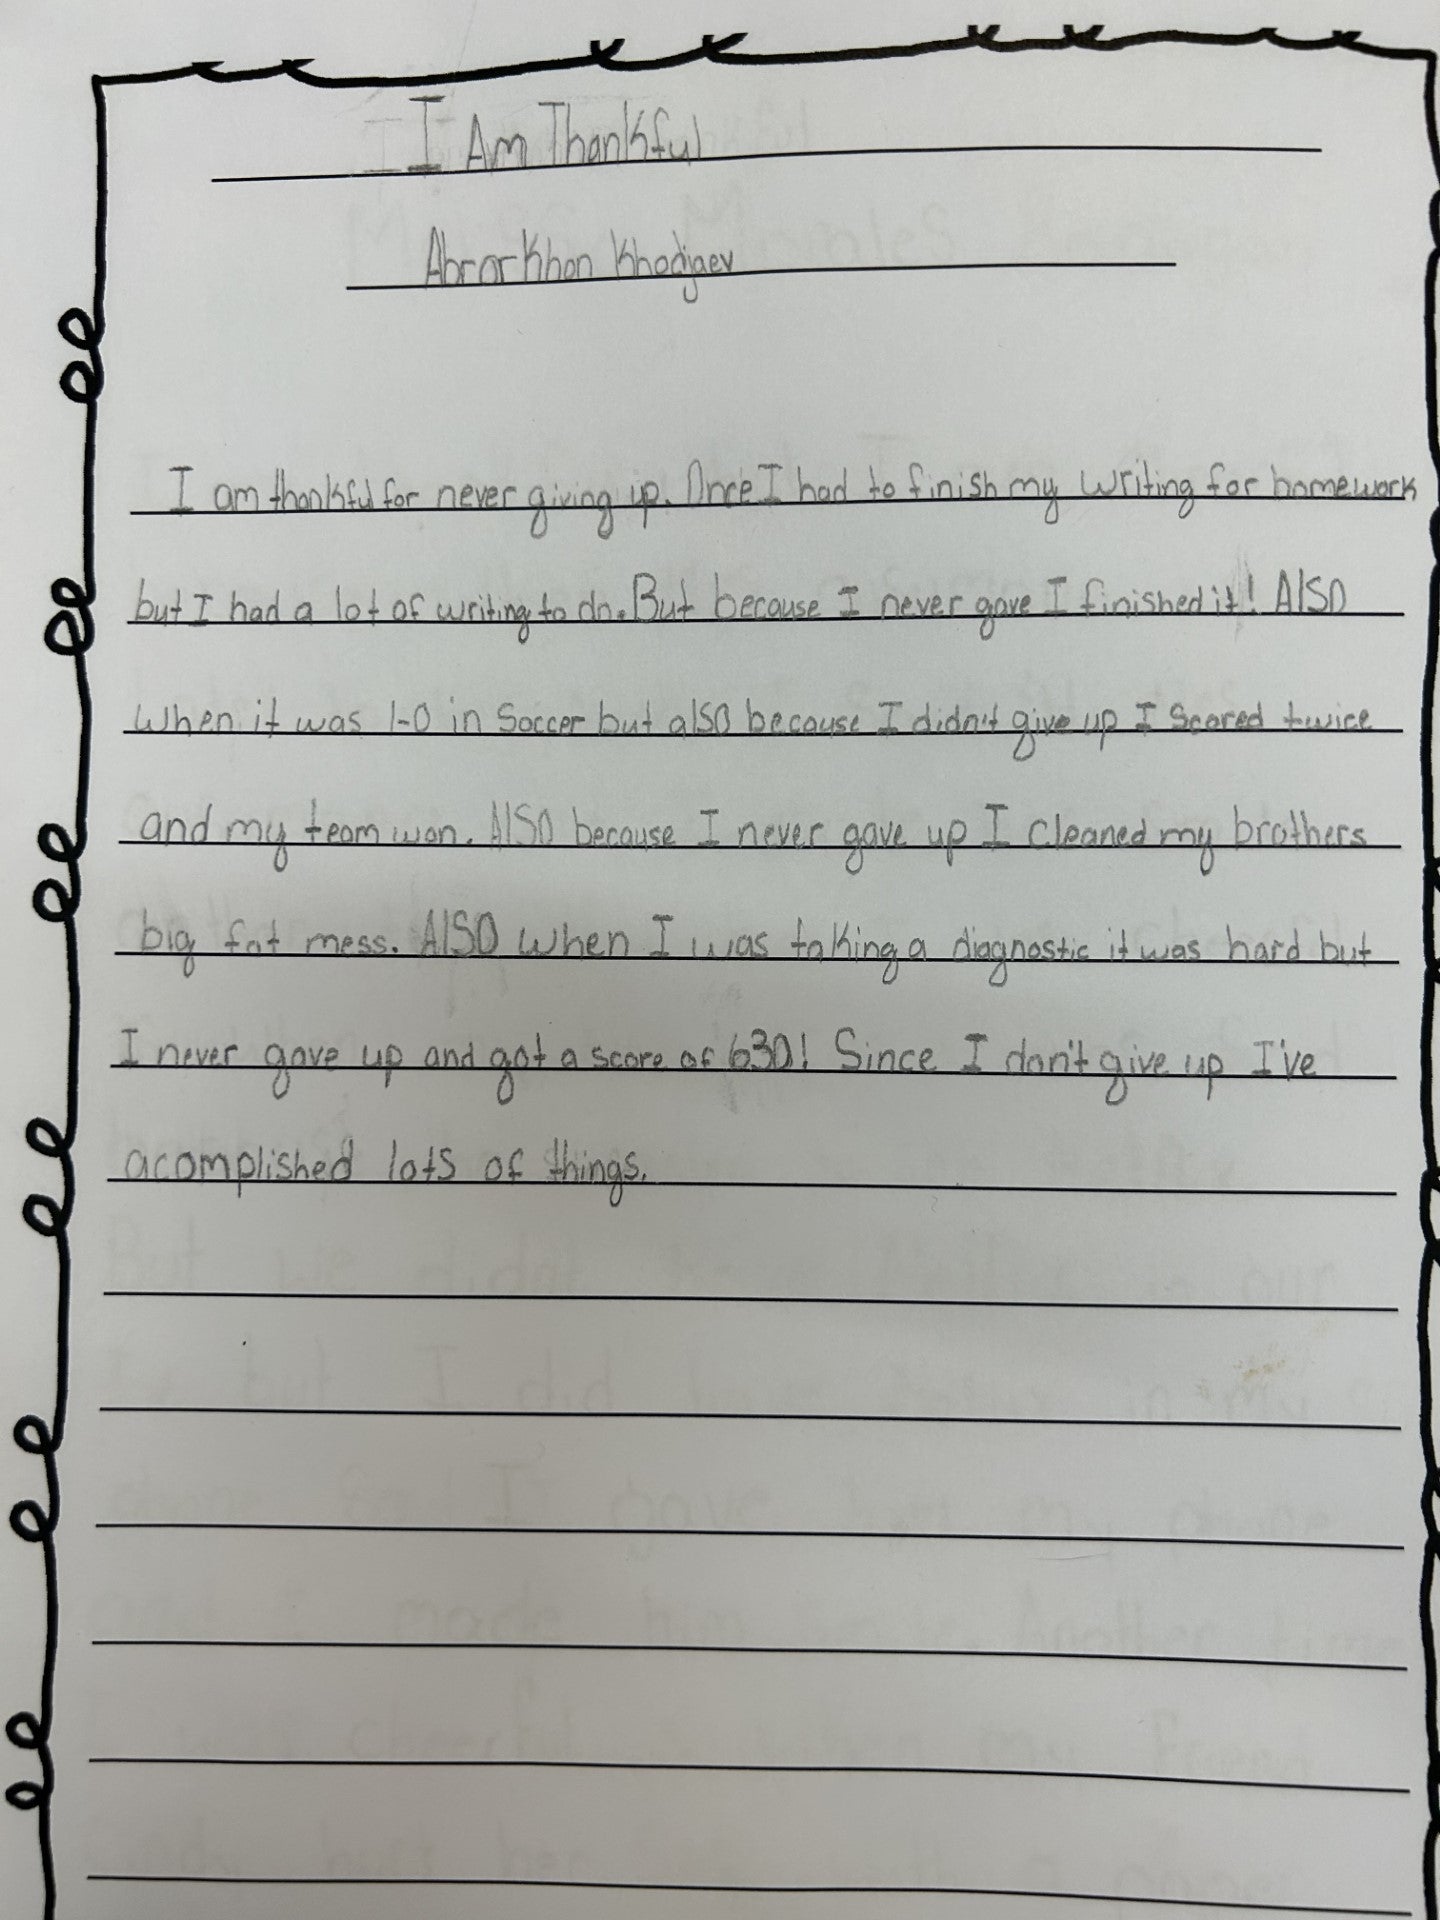 I Am Thankful
Abrorkhon Khodjaev
I am thankful for never giving up. Once I had to finish my writing for homework
but I had a lot of writing to do. But because I never gave I finished it! Also
when it was 1-0 in Soccer but also because I didn't give up I Scored twice
and my team won. Also because I never gave up I cleaned my brothers
big fat mess. Also when I was taking a diagnostic it was hard but
I never gave up and got a score of 630! Since I don't give up I've
acomplished lots of things.